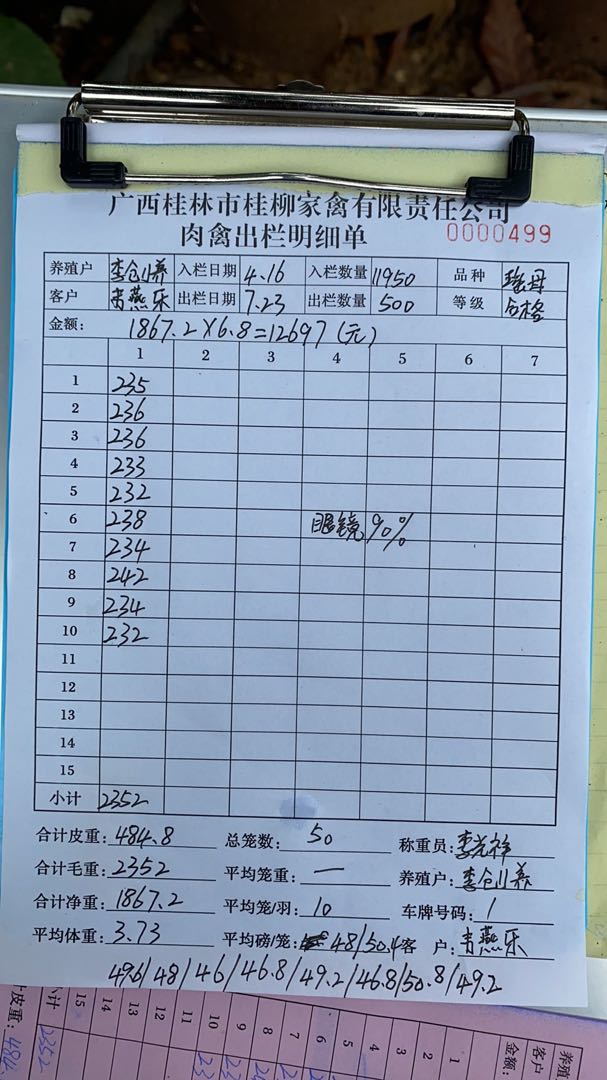 广西桂林市桂柳家禽有限责任公司
肉禽出栏明细单 0000499
养殖户 李仓川养 入栏日期 4.16 入栏数量 11950 品种 瑶母
客户 韦燕乐 出栏日期 7.23 出栏数量 500 等级 合格
金额: 1867.2×6.8=12697(元)
1 2 3 4 5 6 7
1 235
2 236
3 236
4 233
5 232
6 238 眼镜90%
7 234
8 242
9 234
10 232
11
12
13
14
15
小计 2352
合计皮重: 484.8 总笼数: 50 称重员: 李光祥
合计毛重: 2352 平均笼重: — 养殖户: 李仓川养
合计净重: 1867.2 平均笼/羽: 10 车牌号码: /
平均体重: 3.73 平均磅/笼: 48/50.4 客 户: 韦燕乐
49.6/48/46/46.8/49.2/46.8/50.8/49.2